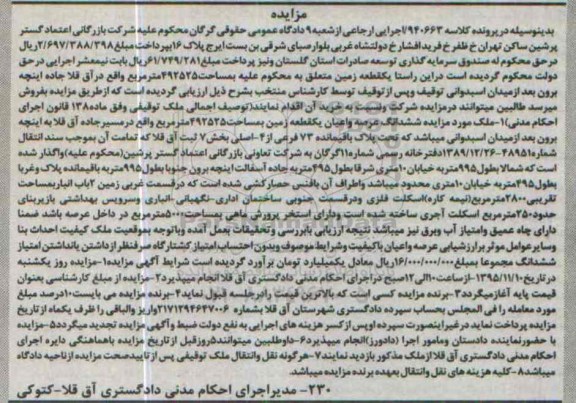 مزایده
بدینوسیله در پرونده کلاسه ۹۴۰۶۶۳/اجرایی ارجاعی از شعبه ۹ دادگاه عمومی حقوقی گرگان محکوم علیه شرکت بازرگانی اعتماد گستر
پرشین ساکن تهران خ ظفر خ فرید افشار خ دولتشاه غربی بلوار صبای شرقی بن بست ایرج پلاک ۱۶ بپرداخت مبلغ ۲/۶۹۷/۳۸۸/۳۹۸ ریال
در حق محکوم له صندوق سرمایه گذاری توسعه صادرات استان گلستان ونیز پرداخت مبلغ ۶۱/۷۴۹/۲۸۱ ریال بابت نیمعشر اجرایی در حق
دولت محکوم گردیده است در این راستا یکقطعه زمین متعلق به محکوم علیه بمساحت ۴۹۲۵۲۵ مترمربع واقع در آق قلا جاده اینچه
برون بعد از میدان اسبدوانی توقیف وپس از توقیف توسط کارشناس منتخب بشرح ذیل ارزیابی گردیده است که از طریق مزایده بفروش
میرسد طالبین میتوانند در مزایده شرکت و نسبت به خرید آن اقدام نمایند(توصیف اجمالی ملک توقیف وفق ماده ۱۳۸ قانون اجرای
احکام مدنی)۱-ملک مورد مزایده ششدانگ عرصه واعیان یکقطعه زمین بمساحت ۴۹۲۵۲۵ مترمربع واقع در مسیر جاده آق قلا به اینچه
برون بعد از میدان اسبدوانی میباشد که تحت پلاک باقیمانده ۷۳ فرعی از ۴-اصلی بخش ۷ ثبت آق قلا که تمامت آن بموجب سند انتقال
شماره ۴۸۹۵۱-۱۳۸۹/۱۲/۲۶ دفترخانه رسمی شماره ۱۱ گرگان به شرکت تعاونی بازرگانی اعتماد گستر پرشین(محکوم علیه)واگذار شده
است که شمالا بطول ۹۹۵ متر به خیابان ۱۰ متری شرقا بطول ۴۹۵ متر به جاده آسفالت اینچه برون جنوبا بطول ۹۹۵ متر به باقیمانده پلاک وغربا
بطول ۴۹۵ متر به خیابان ۱۰ متری محدود میباشد واطراف آن بافنس حصارکشی شده است که در قسمت غربی زمین ۲ باب انبار بمساحت
تقریبی ۲۸۰۰ مترمربع(نیمه کاره)اسکلت فلزی ودر قسمت جنوبی ساختمان اداری-نگهبانی-انباری وسرویس بهداشتی بازیربنای
حدود ۲۵۰ مترمربع اسکلت آجری ساخته شده است ودارای استخر پرورش ماهی بمساحت ۵۰۰۰ مترمربع در داخل عرصه باشد ضمنا
دارای چاه عمیق وامتیاز آب وبرق نیز میباشد نتیجه ارزیابی بابررسی وتحقیقات بعمل آمده وباتوجه بموقعیت ملک کیفیت احداث بنا
وسایر عوامل موثر برارزشیابی عرصه واعیان باکیفیت وشرایط موصوف وبدون احتساب امتیاز کشتارگاه صرفنظر از داشتن یانداشتن امتیاز
ششدانگ مجموعا بمبلغ ۱۶/۰۰۰/۰۰۰/۰۰۰ ریال معادل یکمیلیارد تومان برآورد گردیده است شرایط آگهی مزایده ۱-مزایده روز یکشنبه
در تاریخ ۱۳۹۵/۱۱/۱۰-از ساعت ۱۰ الی ۱۲ صبح در اجرای احکام مدنی دادگستری آق قلا انجام میپذیرد ۲-مزایده از مبلغ کارشناسی بعنوان
قیمت پایه آغاز میگردد ۳-برنده مزایده کسی است که بالاترین قیمت رادر جلسه قبول نماید ۴-برنده مزایده می بایست ۱۰ درصد مبلغ
مورد معامله را فی المجلس بحساب سپرده دادگستری شهرستان آق قلا بشماره ۲۱۷۱۲۹۴۶۴۷۰۰۶ واریز والباقی را ظرف یکماه از تاریخ
مزایده پرداخت نماید در غیر اینصورت سپرده او پس از کسر هزینه های اجرایی به نفع دولت ضبط و آگهی مزایده تجدید میگردد ۵-مزایده
با حضور نماینده دادستان و مامور اجرا (دادورز)انجام میپذیرد ۶-داوطلبین میتوانند ۵ روز قبل از تاریخ مزایده باهماهنگی دایره اجرای
احکام مدنی دادگستری آق قلا از ملک مذکور بازدید نمایند ۷-هرگونه نقل وانتقال ملک توقیفی پس از تایید صحت مزایده از ناحیه دادگاه
میباشد ۸-کلیه هزینه های نقل وانتقال بعهده برنده مزایده میباشد.
۲۳۰- مدیر اجرای احکام مدنی دادگستری آق قلا-کتوکی